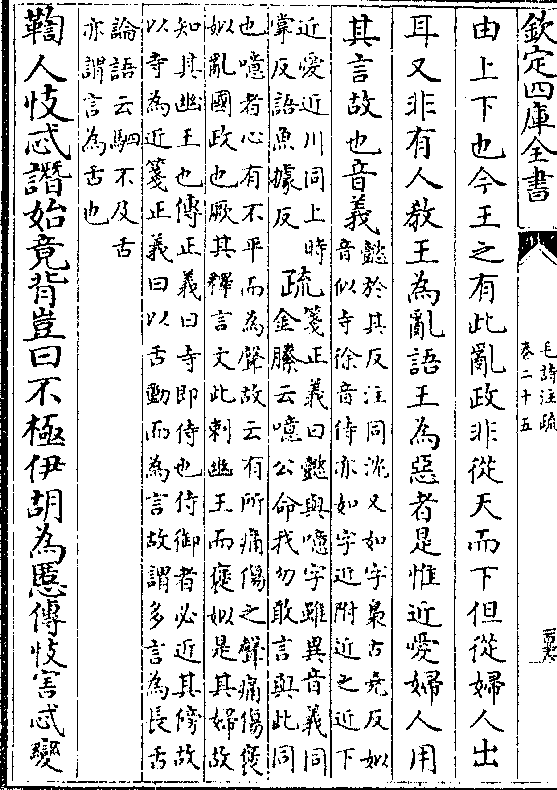 欽定四庫全書
毛詩注疏
卷二十五
由上下也今王之有此亂政非從天而下但從婦人出
耳又非有人教王為亂語王為惡者是惟近愛婦人用
其言故也音義
懿於其反注同沈又如字梟古堯反如
音似寺徐音侍亦如字近附近之近下
近愛近川同上時
掌反語魚據反
疏
箋正義曰懿與噫字雖異音義同
金縢云噫公命我勿敢言與此同
也噫者心有不平而為聲故云有所痛傷之聲痛傷褒
姒亂國政也厥其釋言文此刺幽王而褒姒是其婦故
知其幽王也傳正義曰寺即侍也侍御者必近其傍故
以寺為近箋正義曰以舌動而為言故謂多言為長舌
論語云駟不及舌
亦謂言為舌也
鞫人忮忒譖始竟背豈曰不極伊胡為慝傳忮害忒變